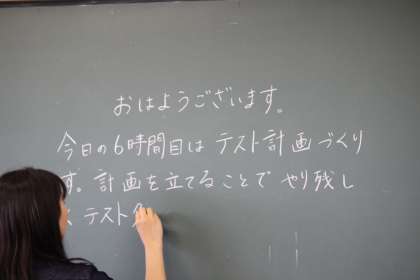 おはようございます。
今日の6時間目は テスト計画づくり
す。計画を立てることで やり残し
く テスト